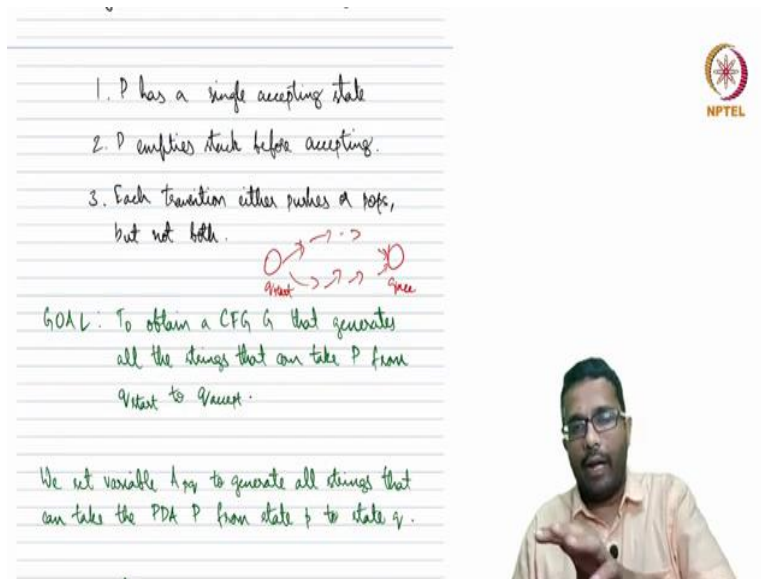 1. P has a single accepting state
2. P empties stack before accepting.
3. Each transition either pushes or pops,
but not both.
qstart qacc
GOAL: To obtain a CFG G that generates
all the strings that can take P from
qstart to qaccept.
We set variable Apq to generate all strings that
can take the PDA P from state p to state q.
NPTEL